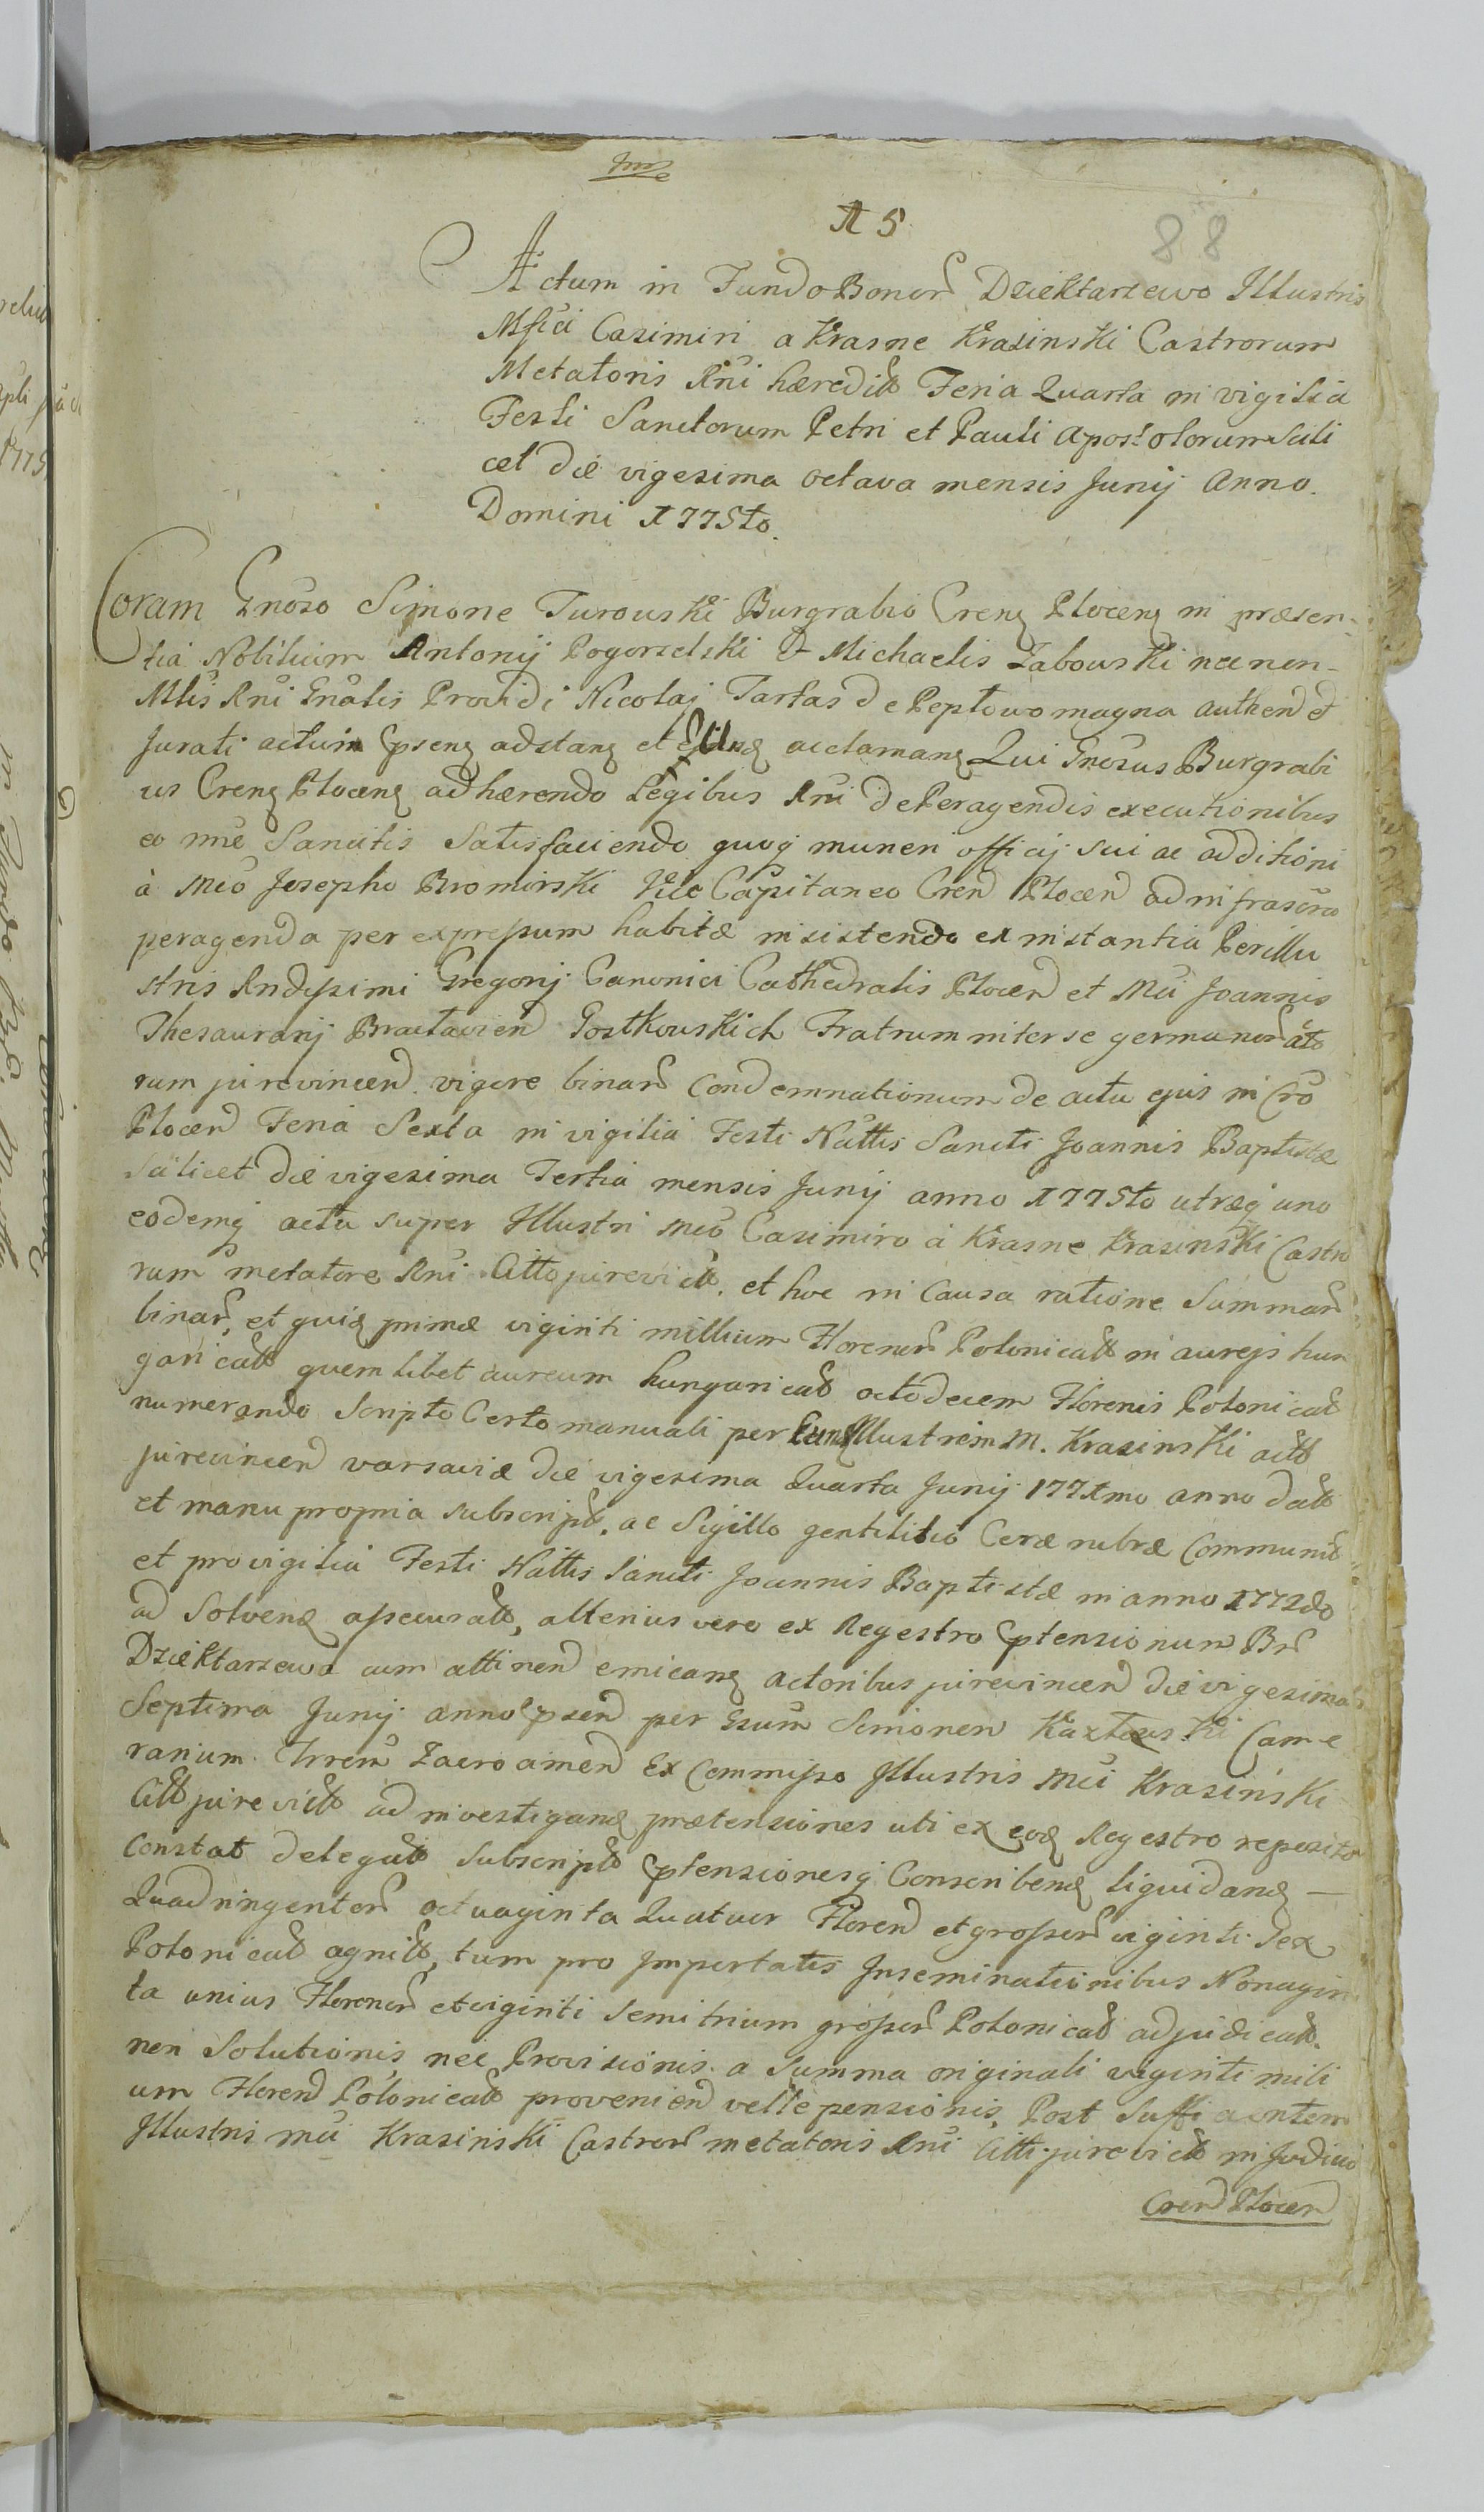 A 5.
88
Actum in Fundo Bonor Dziektarzewo Illustris
Mfici Casimiri a Krasne Krasinski Castrorum
Metatoris Rni hæredit Feria Quarta in vigilia
Festi Sanctorum Petri et Pauli Apostolorum Scili
cet die vigesima octava mensis Junij Anno
Domini 1775to.
Coram Gnoso Simone Turowski Burgrabio Cren Plocen in præsen-
tia Nobilium Antonij Pogorzelski & Michaelis Zabowski nec non-
Mlis Rni Gnalis Providi Nicolaj Tartas de Peptowo magna authen et
Jurati actum psens adstan et acclaman Qui Gnosus Burgrabi
us Cren Plocen adhærendo Legibus Rni de Peragendis executionibus
eo nne Sancitis Satisfaciendo quoq muneri officij sui ac additioni
à Mco Josepho Bromirski Vice Capitaneo Cren Plocen ad infrascra
peragenda per expressum habitæ insistendo ex instantia Perillu
stris Rndissimi Gregorij Canonici Cathedralis Plocen et Mci Joannis
Thesaurarij Braclavien Gostkowskich Fratrum inter se germanor acto
rum jurevincen vigore binar Condemnationum de actu ejus in Cro
Plocen Feria Sexta in vigilia Festi Nattis Sancti Joannis Baptistæ
Scilicet die vigesima Tertia mensis Junij anno 1775to utræq uno
eodemq actu super Illustri Mco Casimiro à Krasne Krasinski Castro
rum metatore Rni Citto jurevict. et hoc in Causa ratione Summar
binar, et quid primæ viginti millium Florenor Polonicalt in aureis hun
garicalt quemlibet aureum hungaricalt octodecem Florenis Polonicalt
numerando Scripto Certo manuali per Eund Illustrem M. Krasinski actt
jurevincen varsaviæ die vigesima Quarta Junij 1771mo anno datt
et manu propria subscript, ac Sigillo gentilitio Ceræ rubræ Communit
et pro vigilia Festi Nattis Sancti Joannis Baptistæ in anno 1772do
ad Solvend assecuratt, alterius vero ex Regestro ptensionum Br
Dziektarzewo cum attinen emican actoribus jurevincen die vigesima
Septima Junij anno psen per Gsum Simonem Came
rarium Trrem Zacroamen Ex Commisso Illustris Mci Krasinski
Citt jurevict ad investigand prætensiones uti ex eod Regestro reposito
Constat delegatt subscript ptensionesq Conscribend liquidand —
Quadringentor octuaginta Quatuor Floren et grossor viginti Sex
Polonicalt agnitt, tum pro Impertatis Inseminationibus Nonagin
ta unius Florenor et viginti Semitrium grossor Polonicalt adjudicatt.
non Solutionis nec Provisionis a Summa originali viginti mili
um Floren Polonicalt provenien velle pensionis, Post Sufficientem
Illustris Mci Krasinski Castror metatoris Rni Citti jurevict in Judicio
Cren Plocen